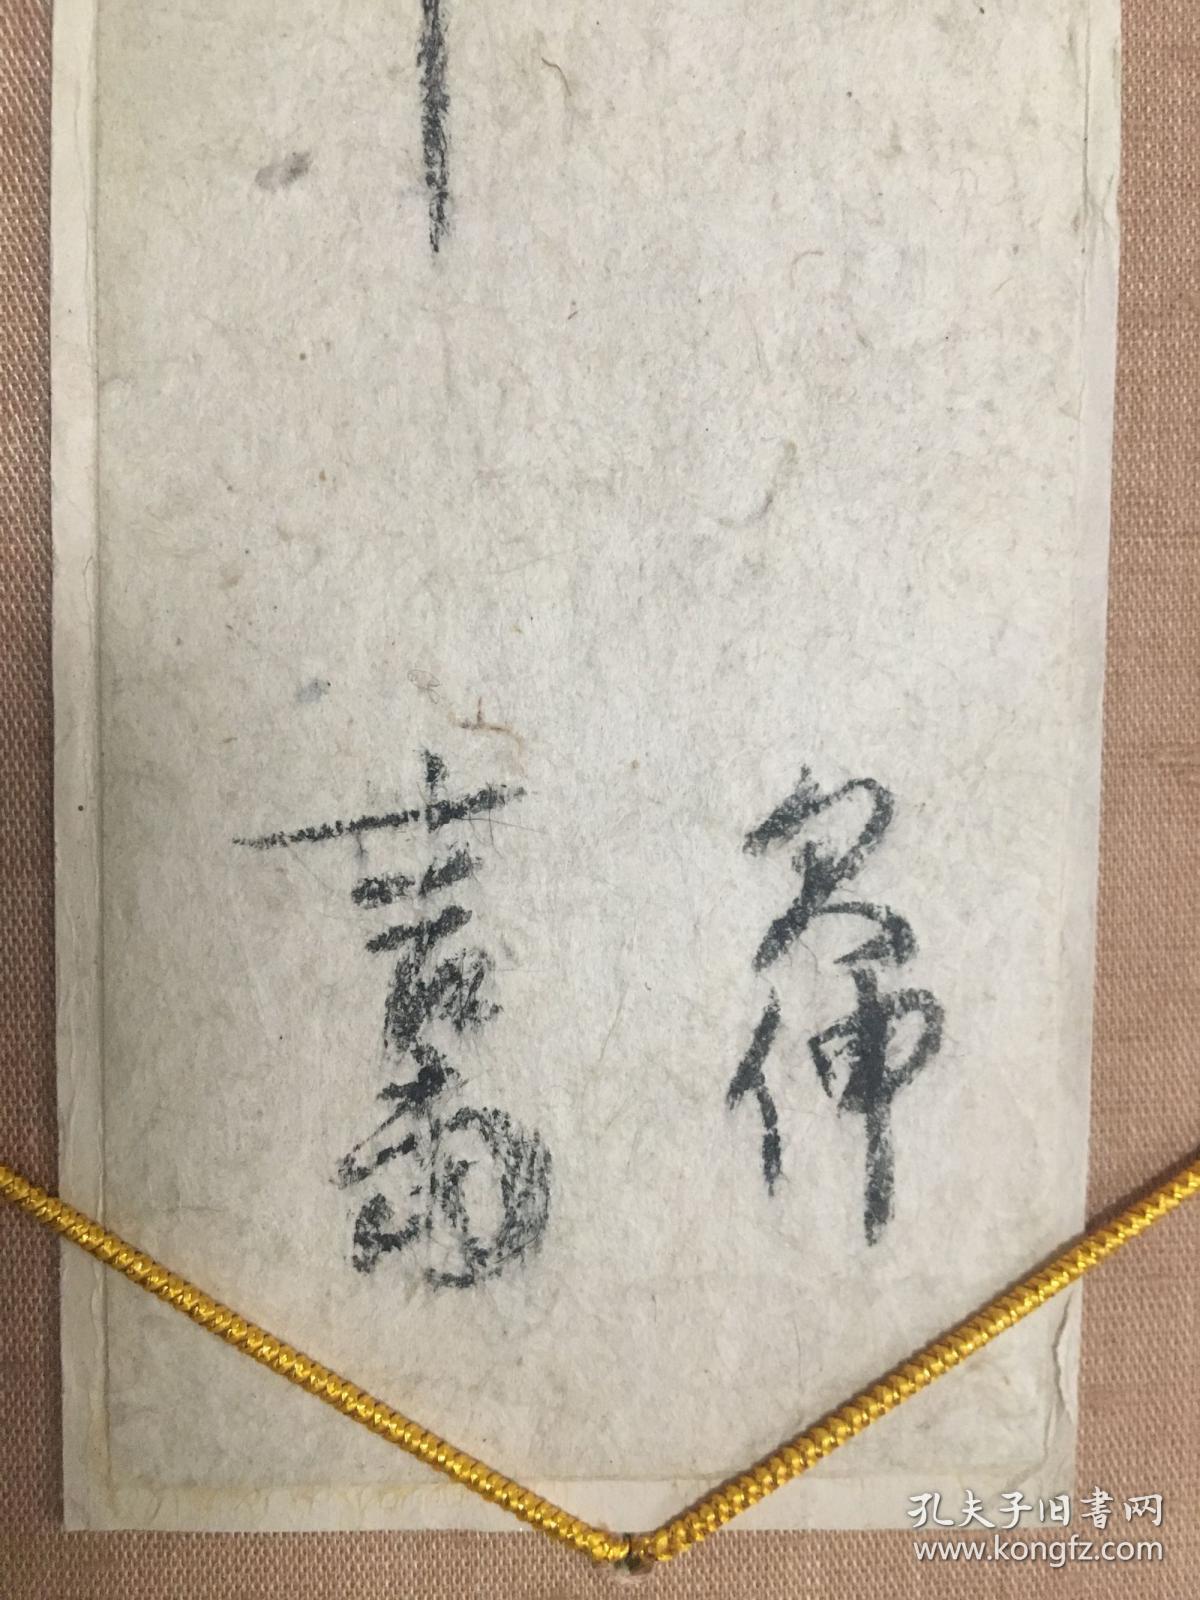 欠伸
喜雨
孔夫子旧書网
www.kongfz.com